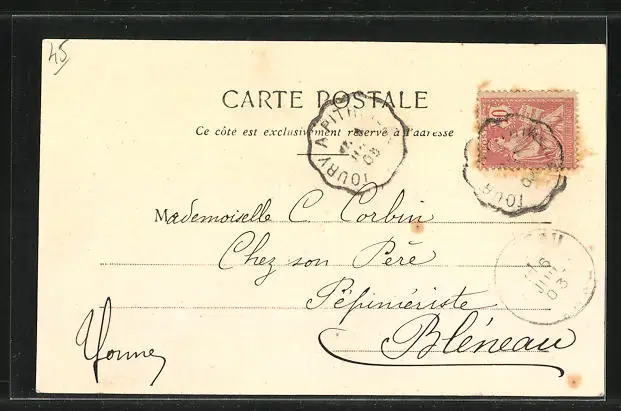 45
CARTE POSTALE
Ce côté est exclusivement réservé à l'adresse
TOURY A PITHIVIERS
03
10
POSTES
TOURY
Mademoiselle C. Corbin
Chez son Père
Pépiniériste
Bléneau
Yonne
6
JUIL
03